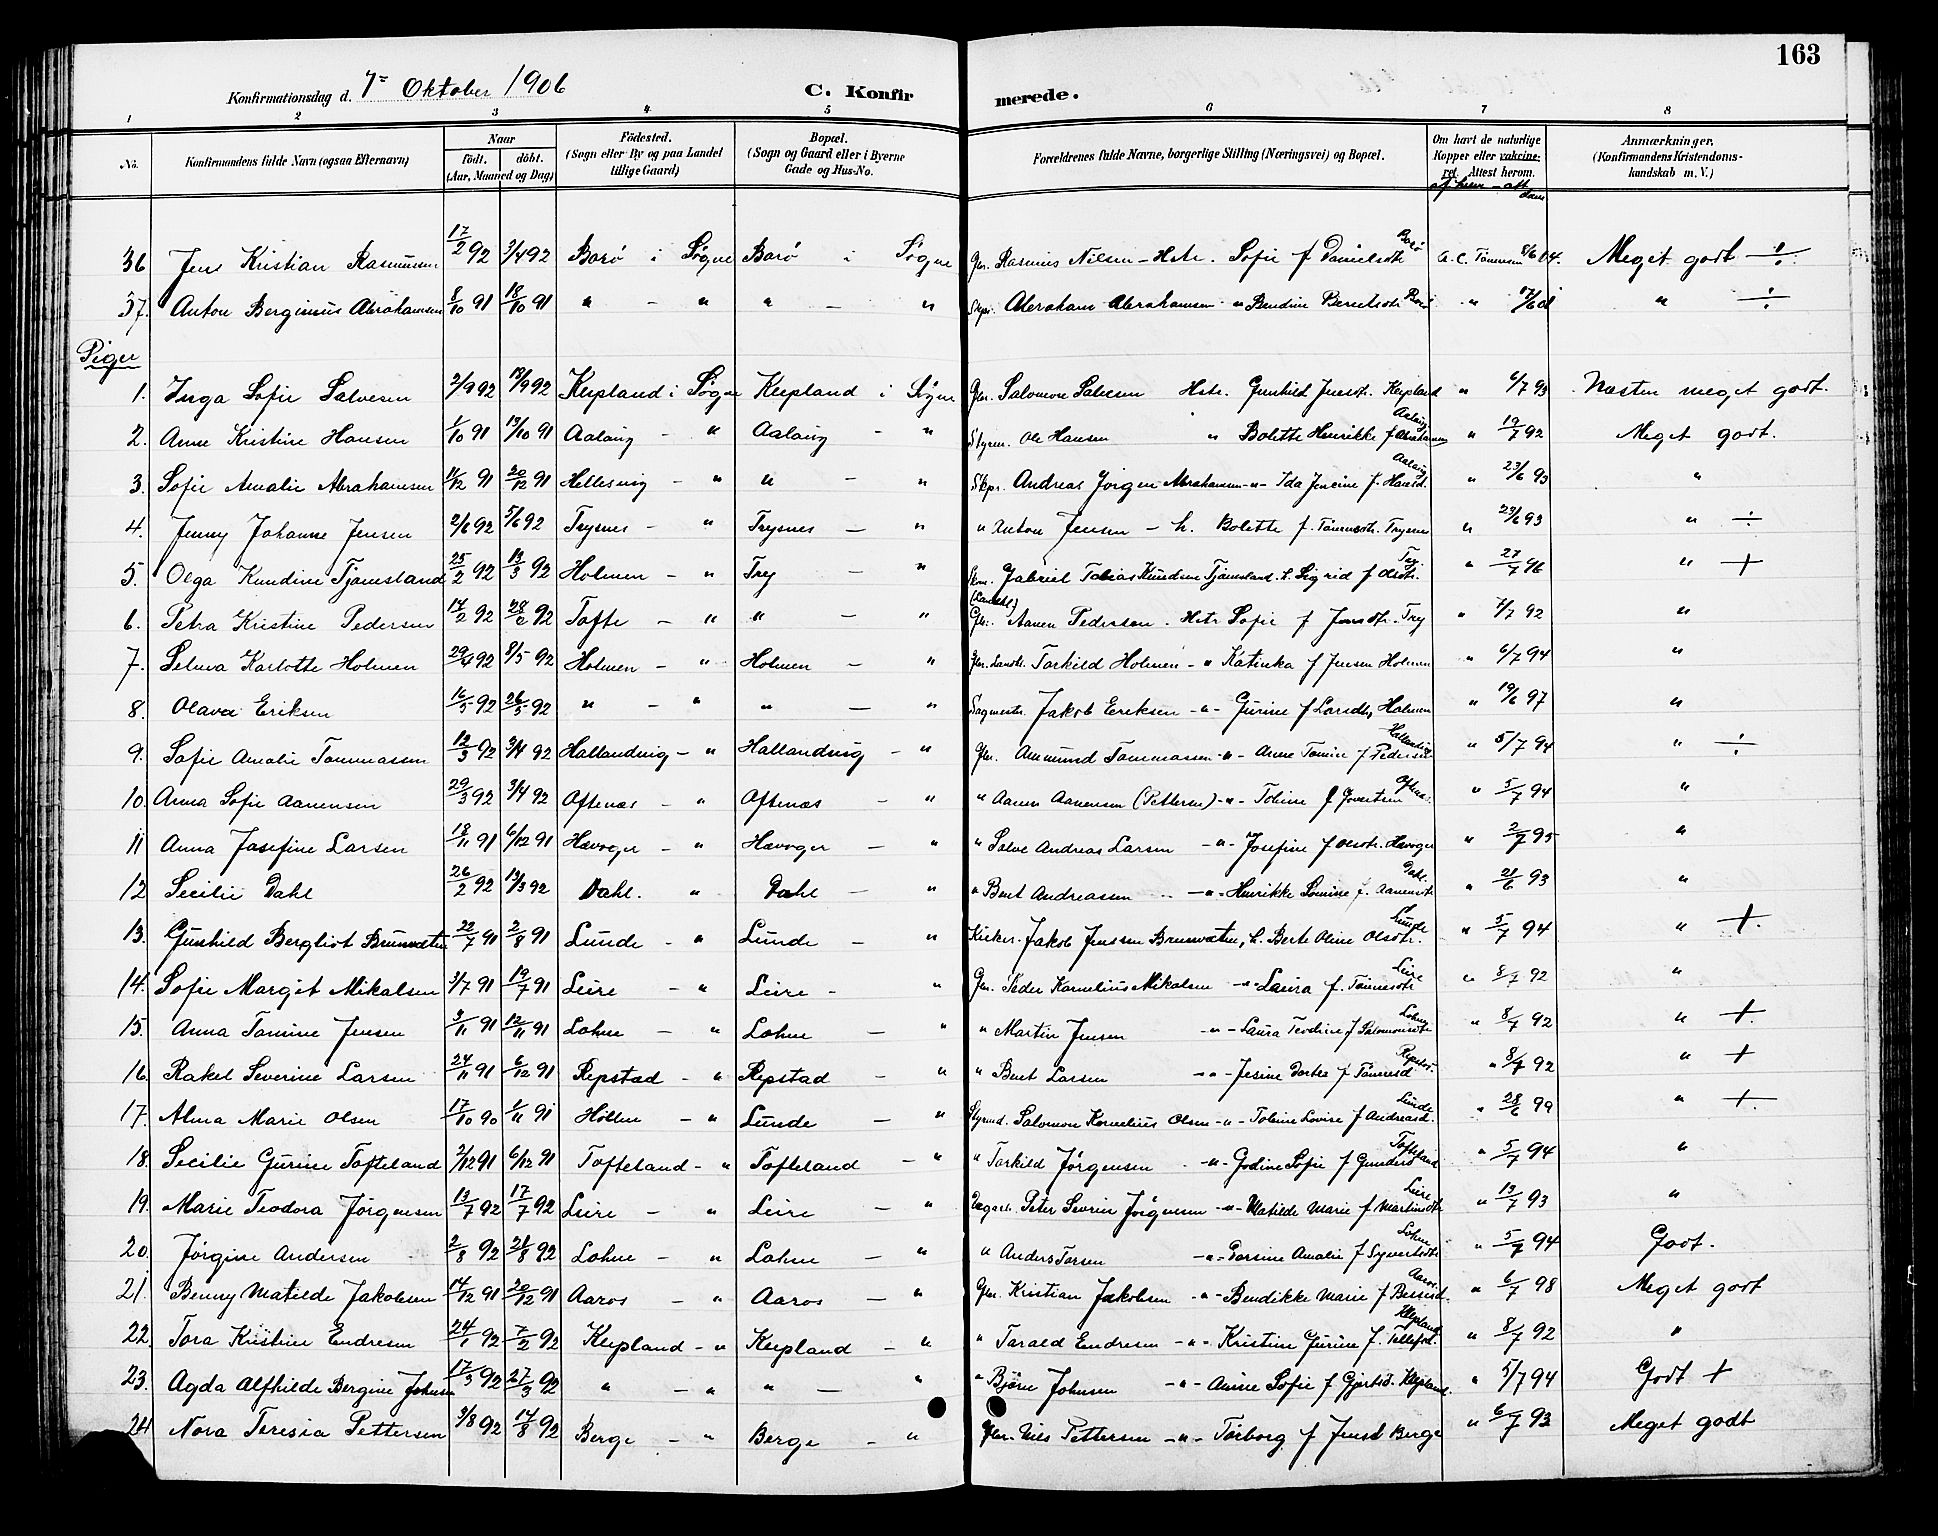 163
Konfirmationsdag d. 7de Oktober 1906 C. Konfirmerede.
1 2 3 4 5 6 7 8
No. Konfirmandens fulde Navn (ogsaa Efternavn) Naar født. døbt. (Aar, Maaned og Dag) Fødested. (Sogn eller By og paa Landet tillige Gaard) Bopæl. (Sogn og Gaard eller i Byerne Gade og Hus-No. Forældrenes fulde Navne, borgerlige Stilling (Næringsvei) og Bopæl. Om havt de naturlige Kopper eller vakcineret. Attest herom. af hvem - att dato Anmærkninger, (Konfirmandens Kristendomskundskab m. V.)
36 Jens Kristian Rasmussen 17/2 92 3/4 92 Borø i Søgne Borø i Søgne Gbr. Rasmus Nilsen - Hstr. Sofie f Danielsdtr Borø A. C. Tønnesen 8/6 04. Meget godt ÷
37. Anton Berginius Abrahamsen 8/10 91 18/10 91 " - " " - " Skpr. Abraham Abrahamsen " Bendine Berntsdtr Borø " 17/6 01 " ÷
Piger
1. Inga Sofie Salvesen 2/9 92 18/9 92 Klepland i Søgne Klepland i Søgne Gbr. Salomon Salvesen Hstr. Gunhild Jensdtr. Klepland " 6/7 93 Næsten meget godt.
2. Anne Kristine Hansen 1/10 91 13/10 91 Aalaug - " Aalaug - " Styrm. Ole Hansen " Bolette Henrikke f Abrahamsen Aalaug " 19/7 92 Meget godt.
3. Sofie Amalie Abrahamsen 11/12 91 20/12 91 Hellesvig - " " - " Skpr. Andreas Jørgen Abrahamsen -"- Ida Jensine f. Hansd. Aalaug " 23/6 93 "
4. Jenny Johanne Jensen 2/6 92 5/6 92 Trysnes - " Trysnes - " " Anton Jensen - h. Bolette f. Tønnesdtr. Trysnes " 23/6 93 " ÷
5. Olga Kundine Tjomsland 25/2 92 13/3 92 Holmen - " Try - " Skm. Gabriel Tobias Knudsen Tjomsland. h. Sigrid f Olsdtr. Try. " 27/7 96 " +
6. Petra Kristine Pedersen 14/2 92 28/2 92 Tofte - " " - " Gbr. Aanen Pederson. Hstr Sofie f Jensdtr. Try " 7/7 92 "
7. Selma Karlotte Holmen 29/4 92 8/5 92 Holmen - " Holmen - " Gbr. Landh. Torkild Holmen - " Katinka f Jensen Holmen " 6/7 94 "
8. Olava Eriksen 16/5 92 26/5 92 " - " " - " Sagmestr. Jakob Eriksen -"- Gurine f Larsdtr, Holmen " 19/6 97 "
9. Sofie Amalie Tommassen 12/3 92 3/4 92 Hallandvig - " Hallandvig - " Gbr. Ammund Tommassen -"- Anne Tomine f Pedersd. Hallandvig " 5/7 94 " ÷
10. Anna Sofie Aanensen 29/3 92 3/4 92 Oftenæs - " Oftenæs - " " Aanen Aanensen (Pettersen) -"- Toline f Govertsen Oftenæs. " 5/7 94 "
11 Anna Josefine Larsen 18/11 91 6/12 91 Havoger - " Havoger - " " Salve Andreas Larsen -"- Josefine f Olsdtr. Havoger " 2/7 95 "
12 Secilie Dahl 26/2 92 13/3 92 Dahl. " Dahl - " " Bent Andreassen -"- Henrikke Lovise f. Aanensdtr Dahl. " 21/6 93 "
13. Gunhild Bergliot Brunvatne 22/7 91 2/8 91 Lunde - " Lunde - " Kirker. Jakob Jenssen Brunvatne, h. Berte Oline Olsdtr. Lunde " 5/7 94 " +
14. Sofie Margit Mikalsen 3/7 91 19/7 91 Leire - " Leire - " Gbr. Peder Kornelius Mikalsen -"- Laura f. Tønnesdtr Leire " 8/7 92 "
15. Anna Tomine Jensen 3/11 91 12/11 91 Lohne - " Lohne - " " Martin Jensen -"- Laura Teodine f Salomonsdtr Lohne " 8/7 92 " +
16. Rakel Severine Larsen 24/11 91 6/12 91 Repstad - " Repstad - " " Bent Larsen -"- Jesine Dortea f Tønnesd Repstad. " 8/7 92 " +
17. Alma Marie Olsen 17/10 90 1/11 91 Høllen - " Lunde - " Styrmd. Salomon Kornelius Olsen -"- Toline Lovise f Andreasd. Lunde " 28/6 99 " +
18. Secilie Gurine Tofteland 2/12 91 6/12 91 Tofteland - " Tofteland - " " Torkild Jørgensen -"- Godine Sofie f Gundersd Tofteland " 5/7 94 "
19. Marie Teodora Jørgensen 13/7 92 17/7 92 Leire - " Leire - " Dagarb. Peter Severin Jørgensen -"- Matilde Marie f Martinsdtr Leire " 13/7 93 "
20. Jørgine Andersen 2/8 92 21/8 92 Lohne - " Lohne - " " Anders Torsen -"- Torsine Amalie f Syvertsdtr Lohne " 5/7 94 Godt.
21. Benny Matilde Jakobsen 14/12 91 20/12 91 Aaros - " Aaros - " Gbr. Kristian Jakobsen -"- Bendikke Marie f Bessesd. Aaros " 6/7 98 Meget godt
22. Tora Kristine Endresen 24/1 92 7/2 92 Klepland - " Klepland - " " Tarald Endresen -"- Kristine Gurine f. Tellefsd. Klepland " 8/7 92 "
23. Agda Alfhilde Bergine Johnsen 17/3 92 27/3 92 " - " " - " " Bjørn Johnsen -"- Anne Sofie f Gjertsd. Klepland. " 5/7 94 Godt +
24 Nora Teresia Pettersen 3/8 92 14/8 92 Berge - " Berge - " Gbr. Nils Pettersen -"- Torborg f Jensd Berge " 6/7 93 Meget godt